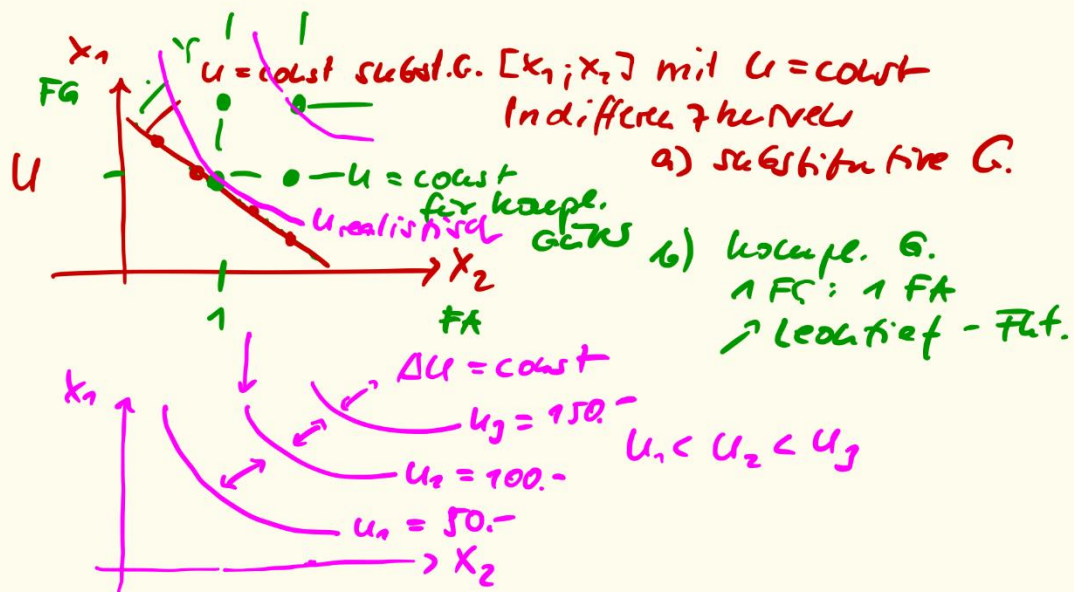 x₁
FG
U = const subst. G. [x₁; x₂] mit U = const
Indifferenzkurven
a) substitutive G.
U
U = const
für kompl.
Güter
U realistisch
b) kompl. G.
1 FG : 1 FA
↗ Leontief - Fkt.
x₂
1
FA
x₁
ΔU = const
U₃ = 150.-
U₁ < U₂ < U₃
U₂ = 100.-
U₁ = 50.-
x₂